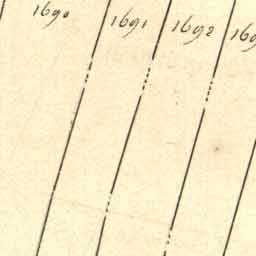 1690 1691 1692 169